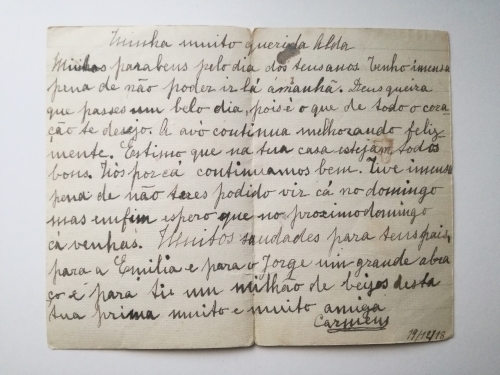 Minha muito querida Alda
Muitos parabens pelo dia dos teus anos. Tenho imensa
pena de não poder ir lá ámanhã. Deus queira
que passes um belo dia, pois é o que de todo o cora-
ção te desejo. A avó continua melhorando feliz-
mente. Estimo que na tua casa estejam todos
bons. Nós por cá continuamos bem. Tive imensa
pena de não teres podido vir cá no domingo
mas emfim espero que no proximo domingo
cá venhas. Muitos saudades para teus pais,
para a Emilia e para o Jorge um grande abra-
ço e para ti um milhão de beijos desta
tua prima muito e muito amiga
Carmens
19/12/18